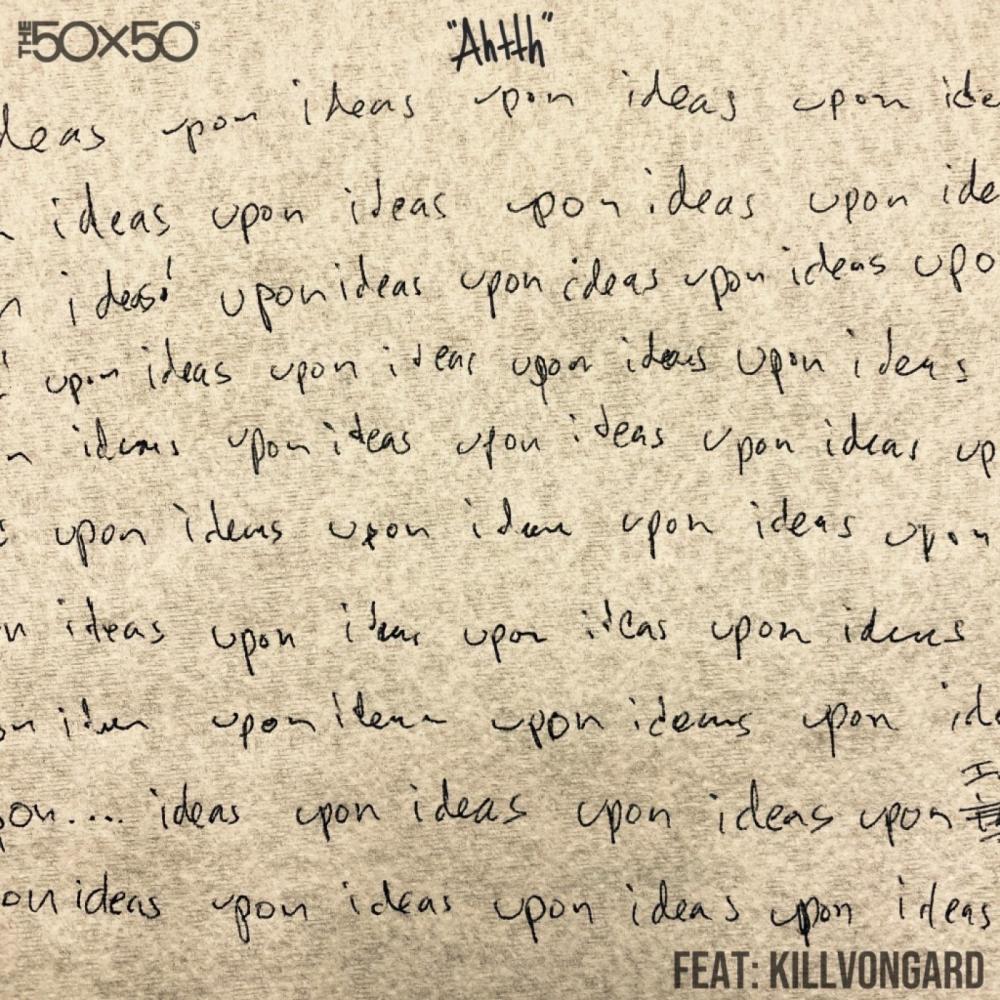 THE 50x50's
"Ahtth"
deas upon ideas upon ideas upon ide
n ideas upon ideas upon ideas upon ide
n ideas! upon ideas upon ideas upon ideas upo
upon ideas upon ideas upon ideas upon ideas
n ideas upon ideas upon ideas upon ideas up
upon ideas upon ideas upon ideas upon
n ideas upon ideas upon ideas upon ideas
on ideas upon ideas upon ideas upon ide
pon.... ideas upon ideas upon ideas upon
on ideas upon ideas upon ideas upon ideas
FEAT: KILLVONGARD